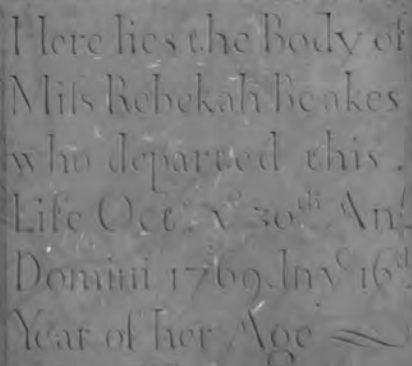 Here lies the Body of
Miſs Rebekah Beakes
who departed this
Life Octr. ye 30th. Ano.
Domini 1769. In ye 16th.
Year of her Age